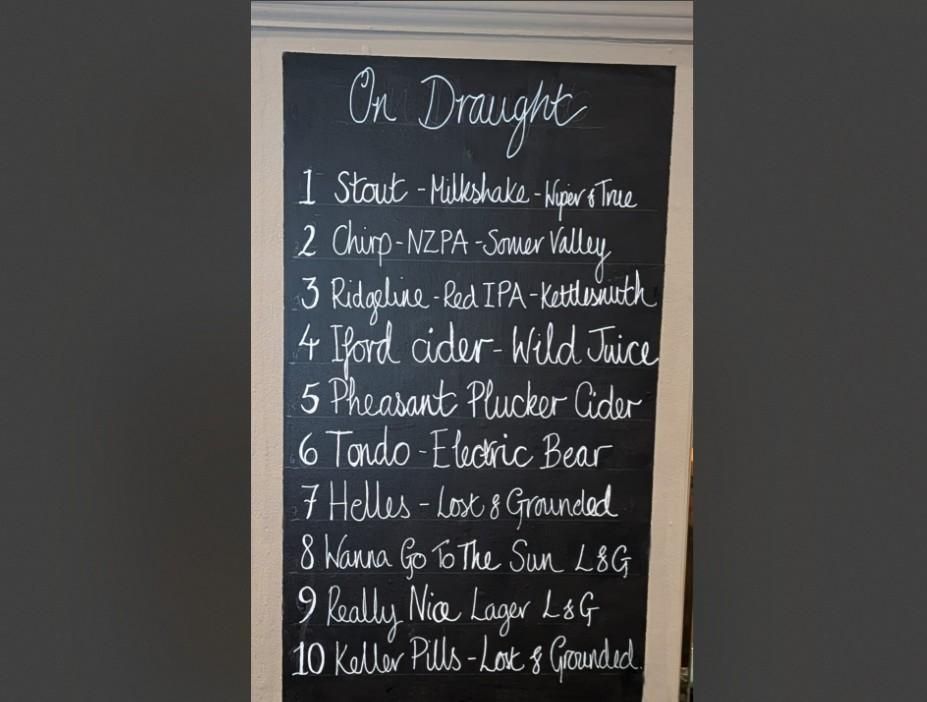 On Draught
1 Stout - Milkshake - Wiper & True
2 Chirp - NZPA - Somer Valley
3 Ridgeline - Red IPA - Kettlesmith
4 Iford cider - Wild Juice
5 Pheasant Plucker Cider
6 Tondo - Electric Bear
7 Helles - Lost & Grounded
8 Wanna Go To The Sun L&G
9 Really Nice Lager L&G
10 Keller Pills - Lost & Grounded.